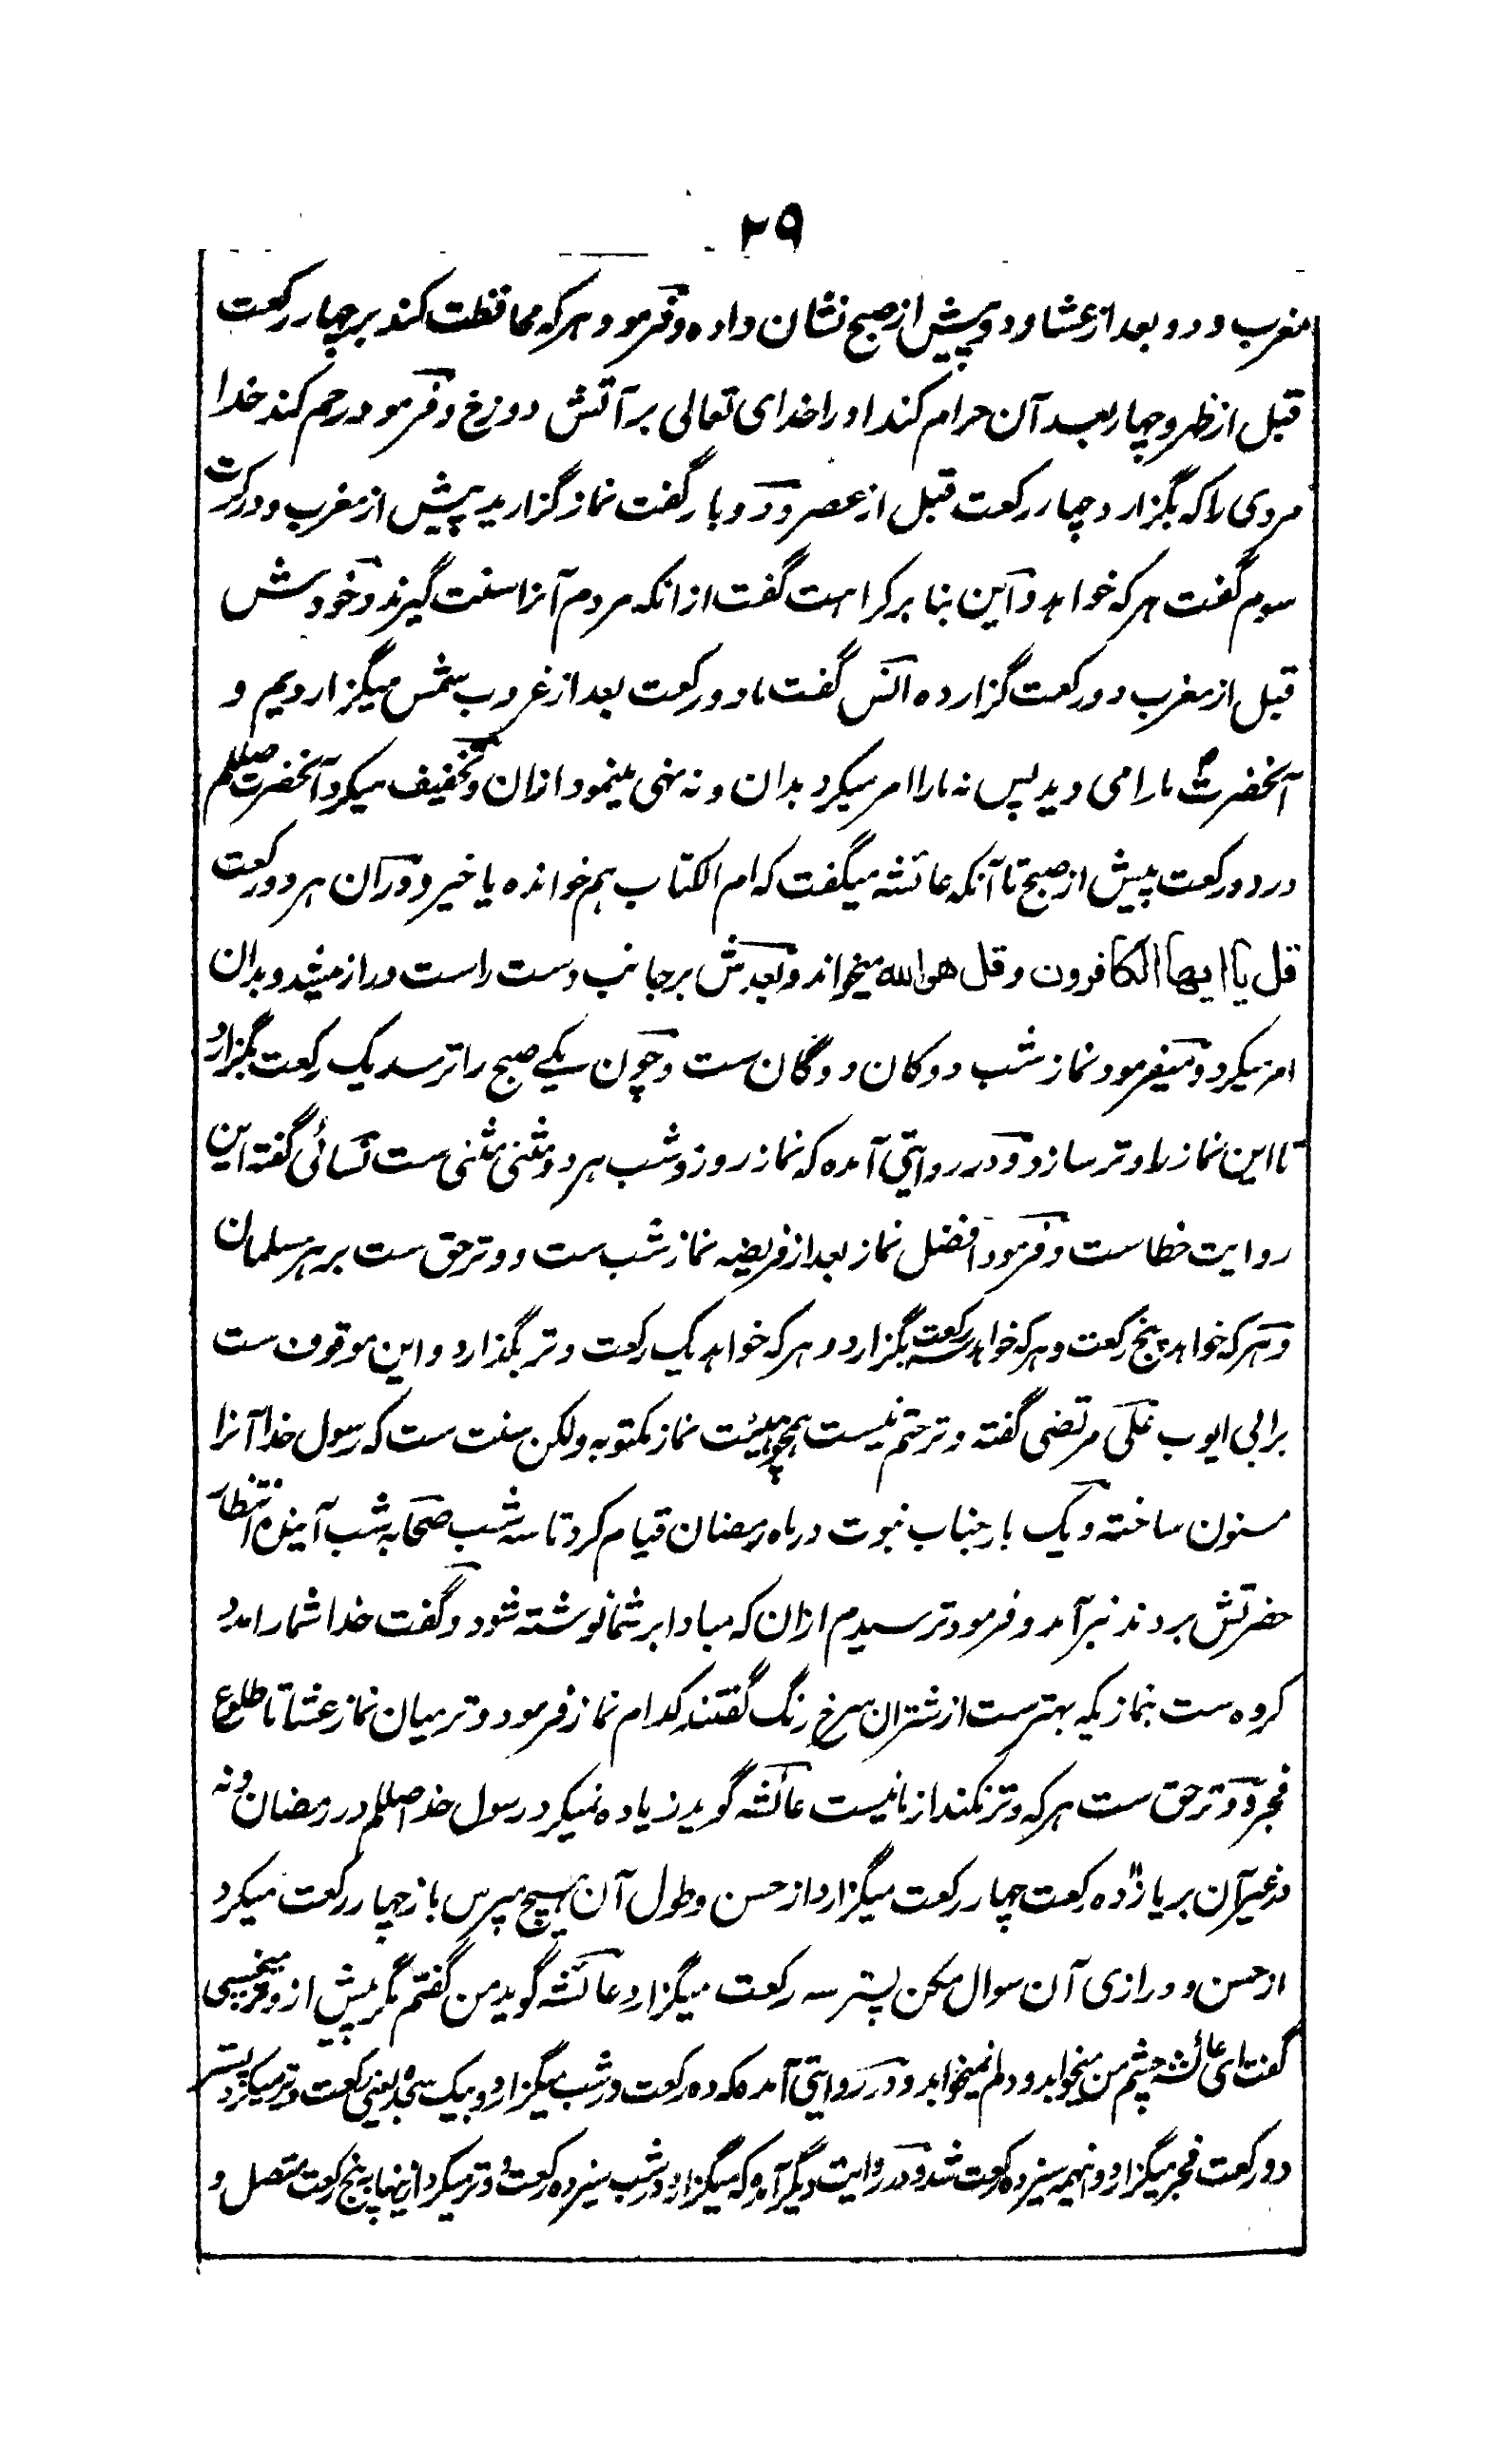 ۲۹
مغرب و دو بعد از عشا و دو پیش از صبح نشان داده و فرمود هر که محافظت کند بر چهار رکعت
قبل از ظهر و چهار بعد آن حرام کند او را خدای تعالی بر آتش دوزخ و فرمود رحم کند خدا
مردی را که بگزارد چهار رکعت قبل از عصر و دو بار گفت نماز گزارید پیش از مغرب و در کرت
سوم گفت هر که خواهد و این بنا بر کراهت گفت ازانکه مردم آنرا سنت گیرند و خودش
قبل از مغرب دو رکعت گزارده انس گفت ما دو رکعت بعد از غروب شمس میگزاردیم و
آنحضرت ما را می دید پس نه ما را امر میکرد بدان و نه نهی مینمود ازان و تخفیف میکرد آنحضرت صللم
در دو رکعت پیش از صبح تا آنکه عائشه میگفت که ام الکتاب هم خوانده یا خیر و دران هر دو رکعت
قل یا ایها الکافرون و قل هو الله میخواند و بعدش بر جانب دست راست دراز میشد و بدان
امر میکرد و میفرمود نماز شب دوگان دوگان ست و چون یکے صبح را ترسد یک رکعت بگزارد
تا این نماز را وتر سازد و در روایتی آمده که نماز روز و شب هر دو مثنی مثنی ست نسائی گفته این
روایت خطاست و فرمود افضل نماز بعد از فریضه نماز شب ست و وتر حق ست بر هر مسلمان
و هر که خواهد پنج رکعت و هر که خواهد سه رکعت بگزارد و هر که خواهد یک رکعت وتر بگذارد و این موقوف ست
بر ابی ایوب علی مرتضی گفته وتر حتم نیست همچو هیئت نماز مکتوبه ولکن سنت ست که رسول خدا آنرا
مسنون ساخته و یک بار جناب نبوت در ماه رمضان قیام کرد تا سه شب صحابه شب آینده انتظار
حضرتش بردند نبرآمد و فرمود ترسیدم ازان که مبادا بر شما نوشته شود و گفت خدا شما را مدد
کرده ست بنمازیکه بهترست از شتران سرخ رنگ گفتند کدام نماز فرمود وتر میان نماز عشا تا طلوع
فجر و وتر حق ست هر که وتر نکند از ما نیست عائشه گوید زیاده نمیکرد رسول خدا صللم در رمضان و نه
در غیر آن بر یازده رکعت چهار رکعت میگزارد از حسن و طول آن هیچ مپرس باز چهار رکعت میکرد
از حسن و درازی آن سوال مکن پستر سه رکعت میگزارد عائشه گوید من گفتم مگر پیش از وتر میخسپی
گفت ای عائشه چشم من میخوابد و دلم نمیخوابد و در روایتی آمده که ده رکعت در شب میگزارد و بیک سجده یعنی رکعت وتر میکرد پستر
دو رکعت فجر میگزارد و اینهمه سیزده رکعت شد و در روایت دیگر آمده که میگزارد در شب سیزده رکعت و وتر میکرد ازینها به پنج رکعت متصل و